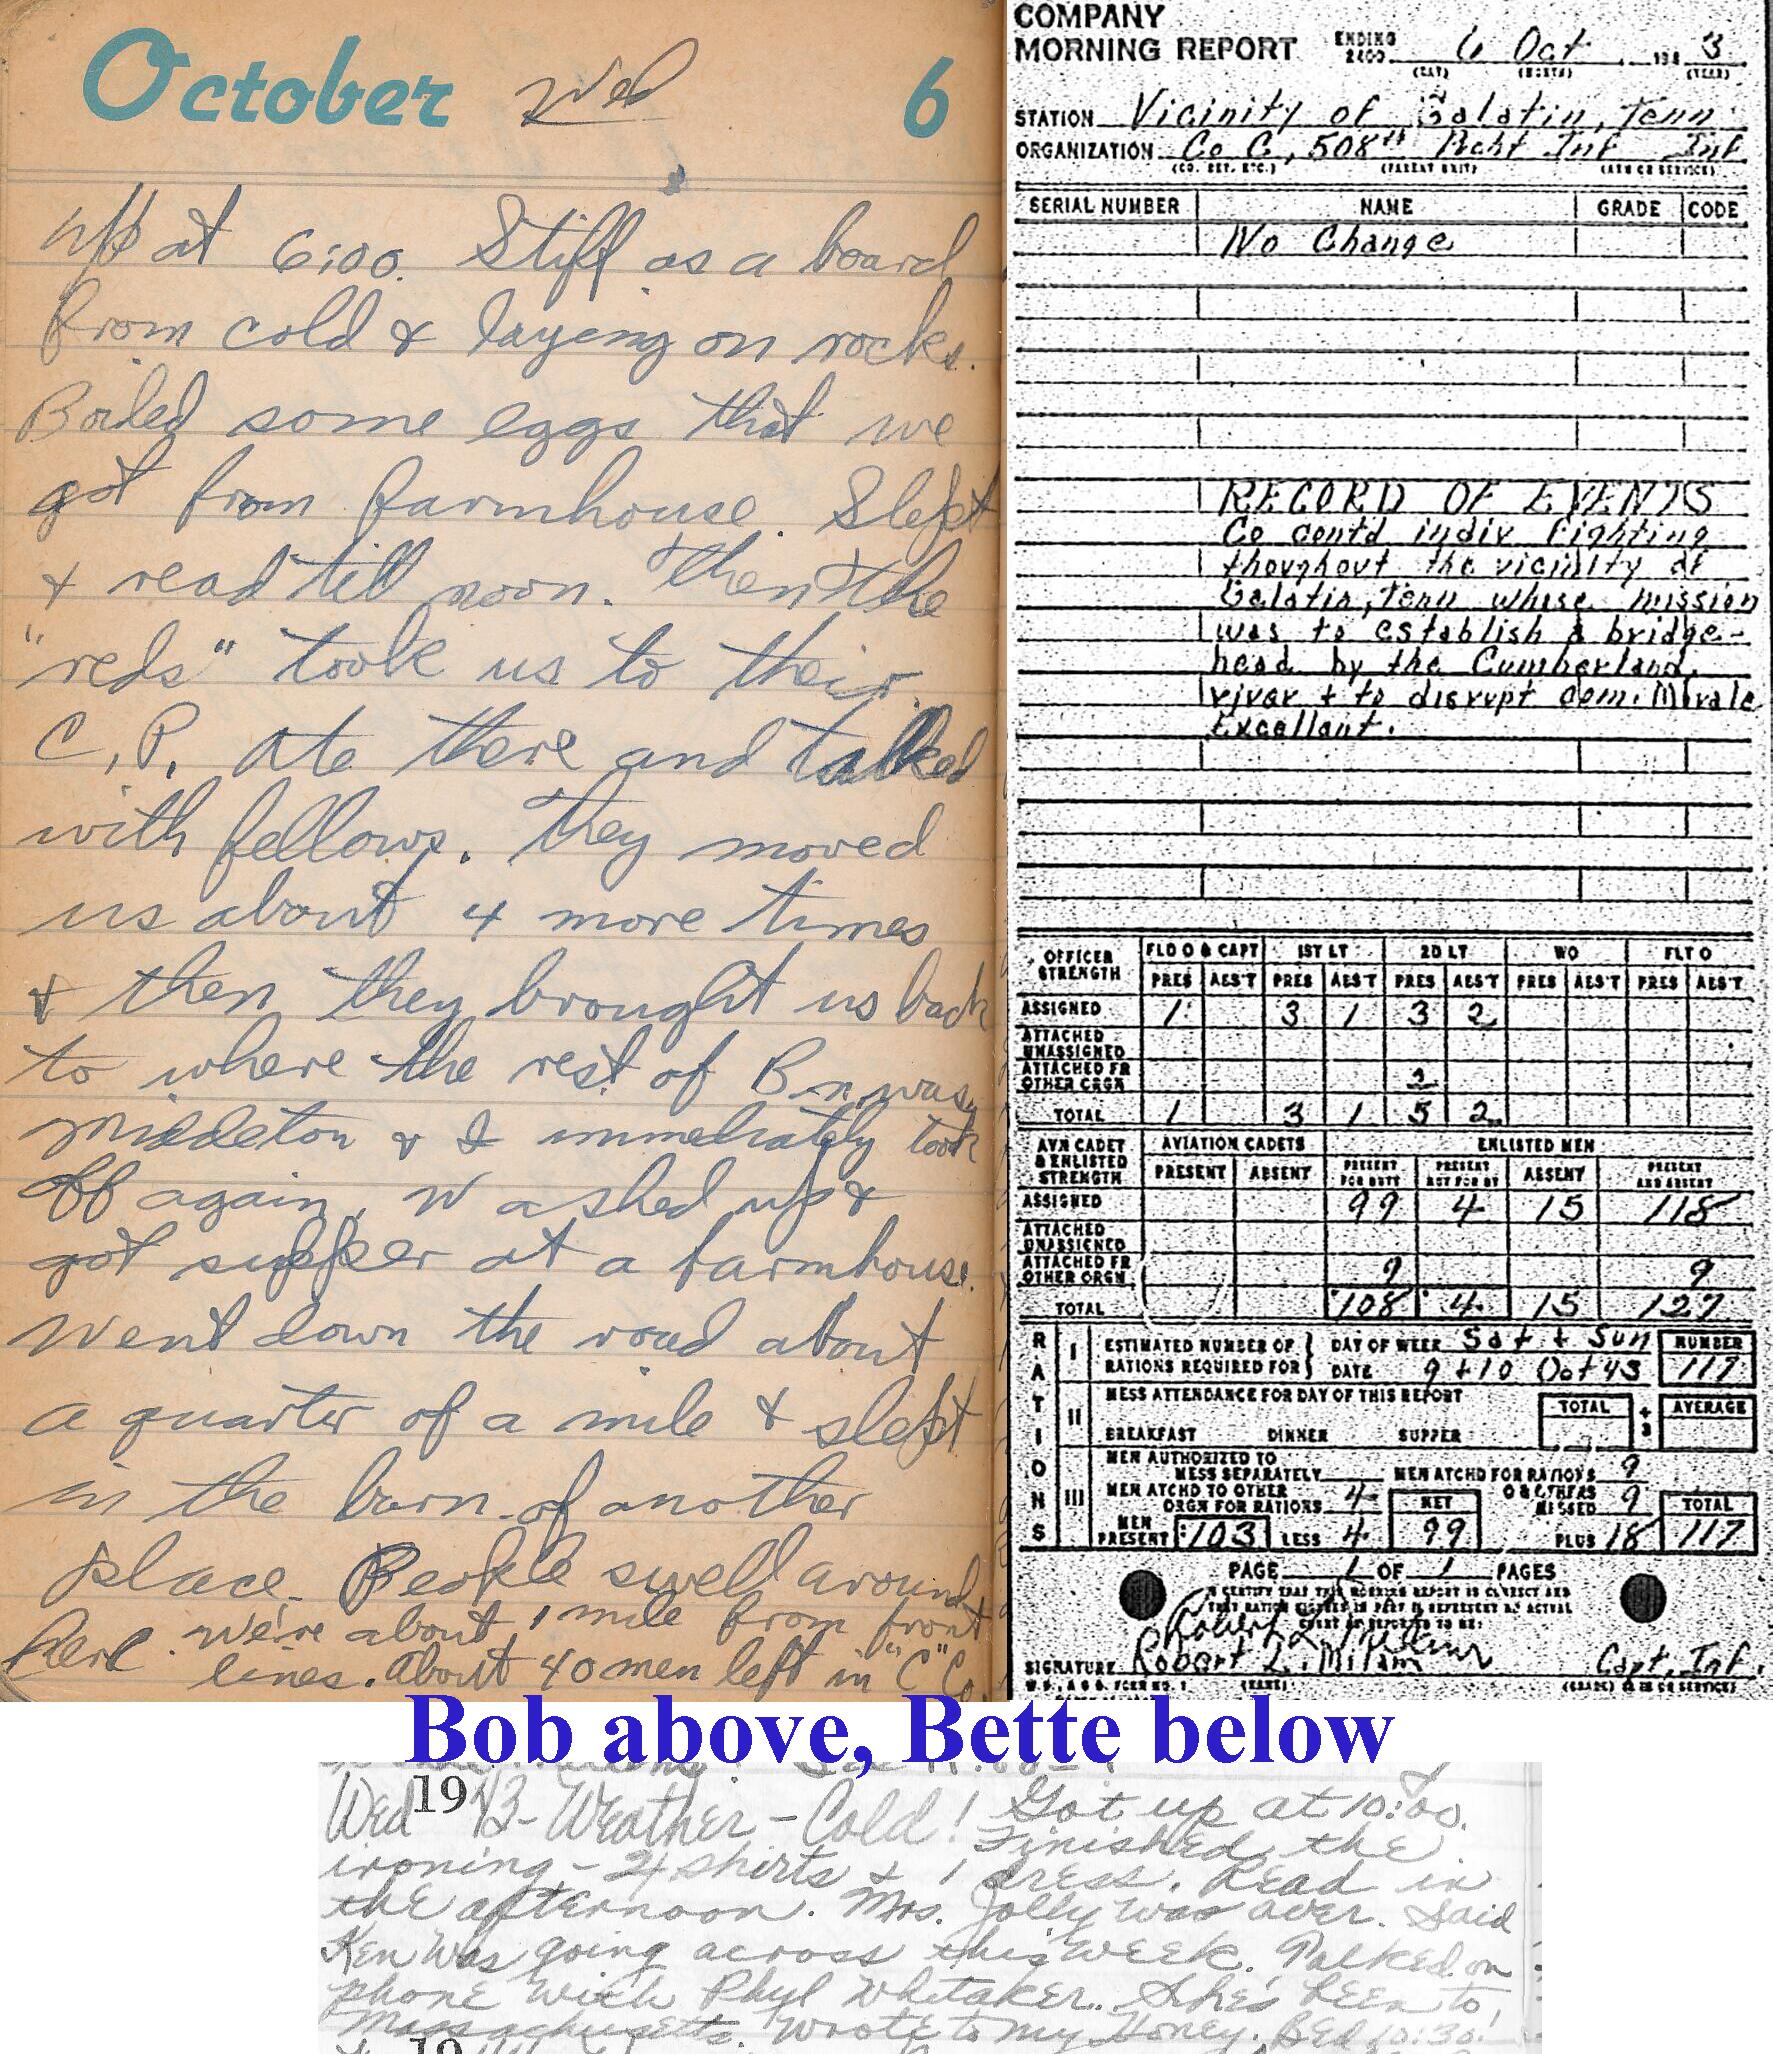 October Wed 6
Up at 6:00. Stiff as a board
from cold & laying on rocks.
Boiled some eggs that we
got from farmhouse. Slept
& read till noon. Then the
"reds" took us to their
C.P. Ate there and talked
with fellows. They moved
us about 4 more times
& then they brought us back
to where the rest of Bn. was.
Middleton & I immediately took
off again. Washed up &
got supper at a farmhouse.
Went down the road about
a quarter of a mile & slept
in the barn of another
place. People swell around
here. We're about 1 mile from front
lines. About 40 men left in "C" Co.
COMPANY
MORNING REPORT ENDING 2400 6 Oct 194 3
(DAY) (MONTH) (YEAR)
STATION Vicinity of Galatin, Tenn
ORGANIZATION Co C, 508th Pcht Inf Inf
(CO. DET. ETC.) (PARENT UNIT) (ARM OR SERVICE)
SERIAL NUMBER NAME GRADE CODE
No Change
RECORD OF EVENTS
Co cont'd indiv fighting
thoughout the vicinity of
Galatin, Tenn whose mission
was to establish a bridge-
head by the Cumberland
river + to disrupt com. Morale
Excellant.
OFFICER STRENGTH FLD O & CAPT 1ST LT 2D LT WO FLT O
PRES ABS'T PRES ABS'T PRES ABS'T PRES ABS'T PRES ABS'T
ASSIGNED 1 3 1 3 2
ATTACHED UNASSIGNED
ATTACHED FR OTHER ORGN 2
TOTAL 1 3 1 5 2
AVN CADET & ENLISTED STRENGTH AVIATION CADETS ENLISTED MEN
PRESENT ABSENT PRESENT FOR DUTY PRESENT NOT FOR DY ABSENT PRESENT AND ABSENT
ASSIGNED 99 4 15 118
ATTACHED UNASSIGNED
ATTACHED FR OTHER ORGN 9 9
TOTAL 108 4 15 127
RATIONS
I ESTIMATED NUMBER OF DAY OF WEEK Sat + Sun NUMBER
RATIONS REQUIRED FOR DATE 9 + 10 Oct 43 117
II MESS ATTENDANCE FOR DAY OF THIS REPORT TOTAL ÷ 3 AVERAGE
BREAKFAST DINNER SUPPER
III MEN AUTHORIZED TO MESS SEPARATELY MEN ATCHD FOR RATIONS 9
MEN ATCHD TO OTHER ORGN FOR RATIONS 4 NET 9 TOTAL
MEN PRESENT 103 LESS 4 99 PLUS 18 117
PAGE 1 OF 1 PAGES
I CERTIFY THAT THIS MORNING REPORT IS CORRECT AND
SIGNATURE Robert L. Milam Capt, Inf.
(NAME) (GRADE) (ARM OR SERVICE)
Bob above, Bette below
Wed 1943 - Weather - Cold! Got up at 10:00.
Finished the
ironing - 4 shirts & 1 dress. Read in
the afternoon. Mrs. Jolly was over. Said
Ken was going across this week. Talked on
phone with Phyl Whitaker. She's been to
Massachusetts. Wrote to my Honey. Bed 10:30.
19